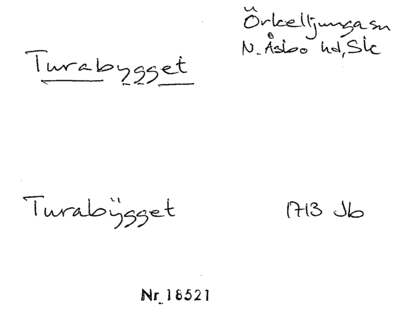 Örkelljunga sn
N. Åsbo hd, Sk
Turabygget
Turabÿgget 1713 Jb
Nr 18521